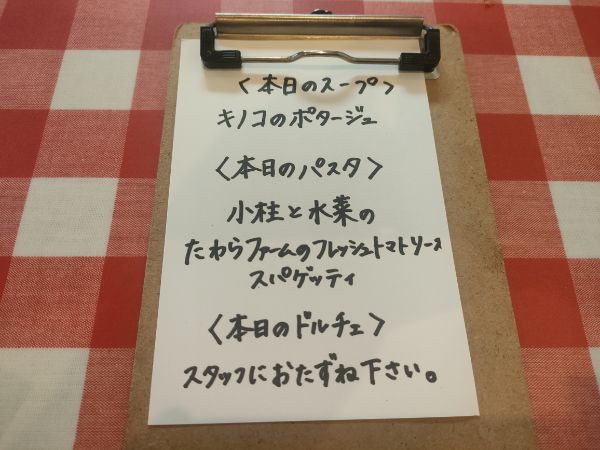 〈本日のスープ〉
キノコのポタージュ
〈本日のパスタ〉
小柱と水菜の
たわらファームのフレッシュトマトソース
スパゲッティ
〈本日のドルチェ〉
スタッフにおたずね下さい。